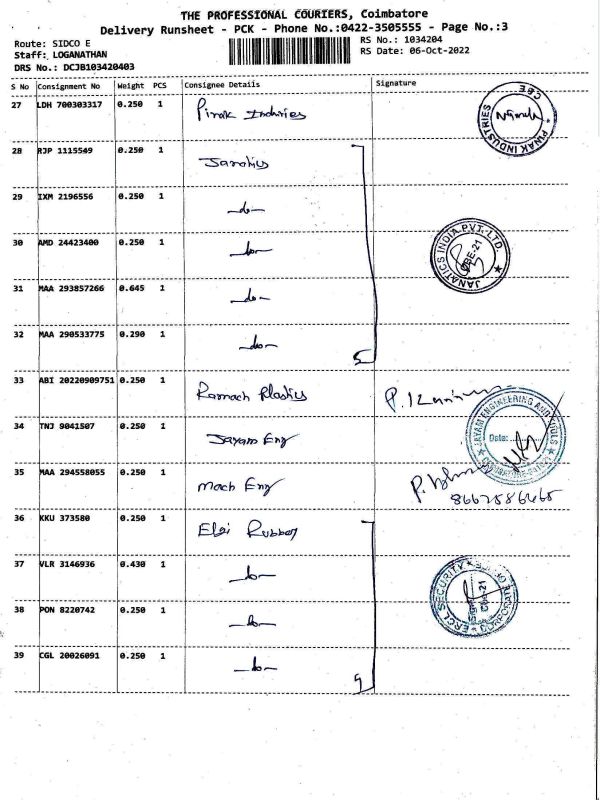 THE PROFESSIONAL COURIERS, Coimbatore
Delivery Runsheet - PCK - Phone No.:0422-3505555 - Page No.:3
Route: SIDCO E
RS No.: 1034204
Staff: LOGANATHAN
RS Date: 06-Oct-2022
DRS No.: DCJB103420403
S No Consignment No Weight PCS Consignee Details Signature
27 LDH 700303317 0.250 1 Pinak Industries
CBE
PINAK INDUSTRIES
28 RJP 1115549 0.250 1 Janatics
29 IXM 2196556 0.250 1 -do-
30 AMD 24423400 0.250 1 -do-
JANATICS INDIA PVT. LTD.
CBE-21
31 MAA 293857266 0.645 1 -do-
32 MAA 290533775 0.290 1 -do-
5
33 ABI 20220909751 0.250 1 Ramach Plastics P.
34 TNJ 9041507 0.250 1 Jayam Eng
JAYAM ENGINEERING AND TOOLS
Date:
35 MAA 294558055 0.250 1 Mach Eng P.
36 KKU 373580 0.250 1 Elgi Rubber
37 VLR 3146936 0.430 1 -do-
SECURITY
38 PON 8220742 0.250 1 -do-
39 CGL 20026091 0.250 1 -do-